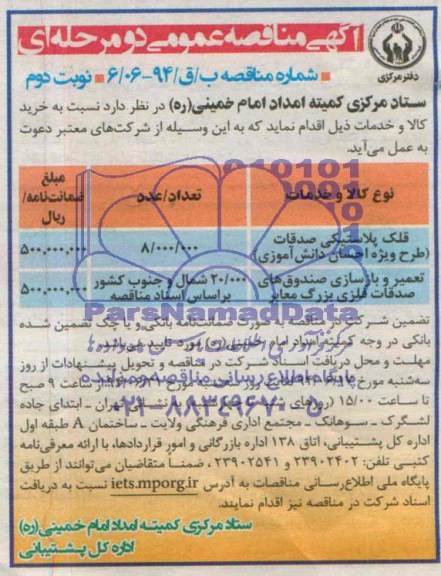 آگهی مناقصه عمومی دو مرحله‌ای
دفتر مرکزی
شماره مناقصه ب/ق/۹۴-۶/۰۶ نوبت دوم
ستاد مرکزی کمیته امداد امام خمینی(ره) در نظر دارد نسبت به خرید
کالا و خدمات ذیل اقدام نماید که به این وسیله از شرکت‌های معتبر دعوت
به عمل می‌آید.
نوع کالا و خدمات
تعداد/عدد
مبلغ ضمانت‌نامه/ ریال
قلک پلاستیکی صدقات
(طرح ویژه احسان دانش آموزی)
۸/۰۰۰/۰۰۰
۵۰۰,۰۰۰,۰۰۰
تعمیر و بازسازی صندوق‌های
صدقات فلزی بزرگ معابر
۲۰/۰۰۰ شمال و جنوب کشور
براساس اسناد مناقصه
۵۰۰,۰۰۰,۰۰۰
ParsNamadData
تضمین شرکت در مناقصه به صورت ضمانت‌نامه بانکی و یا چک تضمین شده
بانکی در وجه کمیته امداد امام خمینی(ره) مورد تایید می‌باشد.
مهلت و محل دریافت اسناد شرکت در مناقصه و تحویل پیشنهادات از روز
سه‌شنبه مورخ
ساعت ۹ صبح
پایگاه اطلاع رسانی مناقصه و مزایده
تا ساعت ۱۵/۰۰ (روزهای
نشانی تهران - ابتدای جاده
۰۲۱-۸۸۳۴۹۶۷۰-۵
لشگرک - سوهانک - مجتمع اداری فرهنگی ولایت - ساختمان A طبقه اول
اداره کل پشتیبانی، اتاق ۱۳۸ اداره بازرگانی و امور قراردادها، با ارائه معرفی‌نامه
کتبی تلفن: ۲۳۹۰۲۴۰۲ و ۲۳۹۰۲۵۴۱ ، ضمنا متقاضیان می‌توانند از طریق
پایگاه ملی اطلاع‌رسانی مناقصات به آدرس iets.mporg.ir نسبت به دریافت
اسناد شرکت در مناقصه نیز اقدام نمایند.
ستاد مرکزی کمیته امداد امام خمینی (ره)
اداره کل پشتیبانی